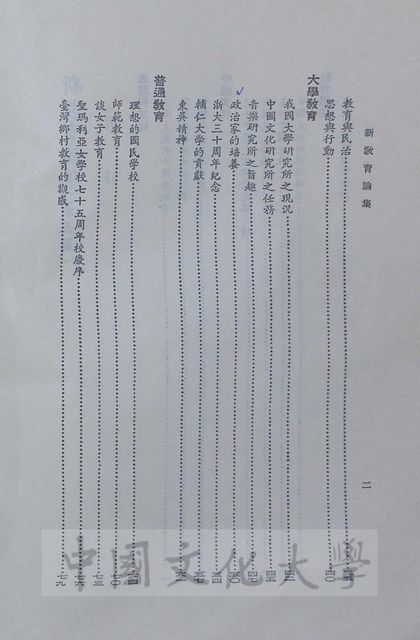 新教育論集
二
教育與民治
思想與行動 四〇
大學教育
我國大學研究所之現況
中國文化研究所之任務 四五
音樂研究所之旨趣 四七
政治家的培養 五〇
浙大三十周年紀念 五四
輔仁大學的貢獻 五七
東吳精神
普通教育
理想的國民學校 六四
師範教育 七〇
談女子教育 七三
聖瑪利亞女學校七十五周年校慶序 七六
臺灣鄉村教育的觀感 七九
中國文化大學